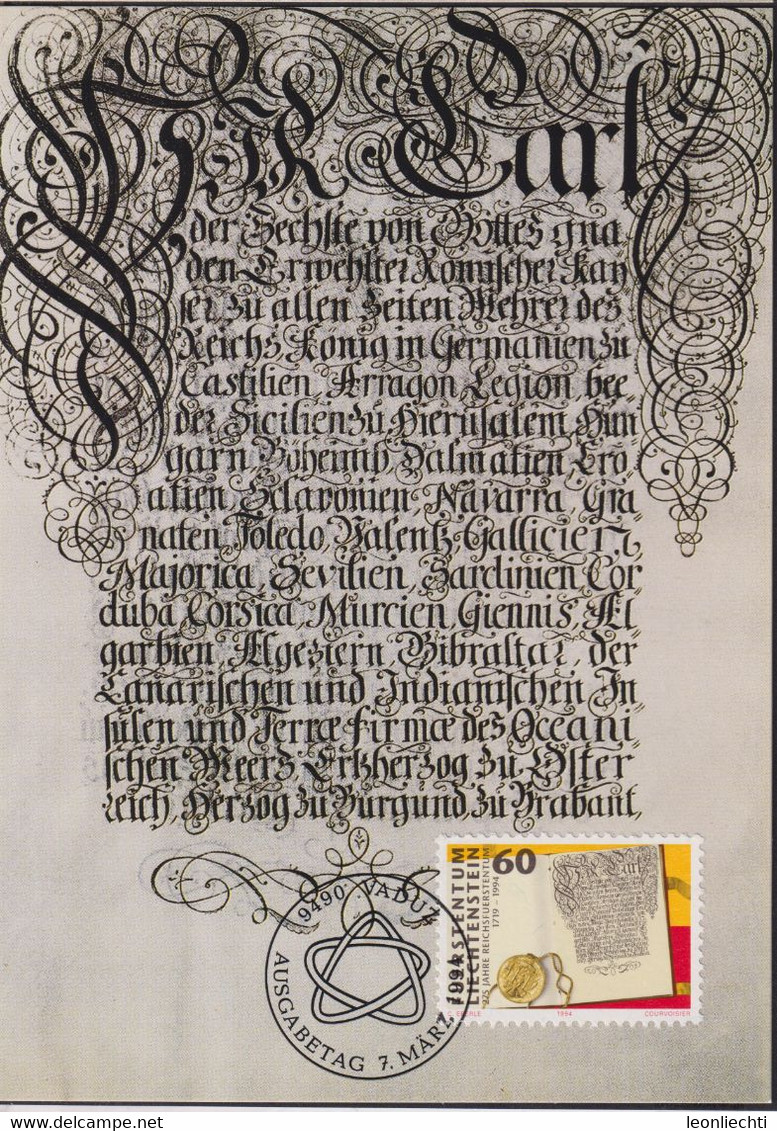 Wir Carl
der Sechste von Gottes gna
den Erwehlter Römischer Kay
ser zu allen Zeiten Mehrer des
Reichs König in Germanien zu
Castilien, Arragon Legion, bee
der Sicilien zu Hierusalem, Hun
garn, Böheimb, Dalmatien, Cro
atien, Sclavonien, Navarra, Gra
naten, Toledo, Valentz, Gallicien,
Majorica, Sevilien, Sardinien Cor
duba, Corsica, Murcien, Giennis, Al
garbien, Algeziern, Gibraltar, der
Canarischen und Indianischen In
sulen und Terræ firmæ des Oceani
schen Meers, Ertzherzog zu Öster
reich, Herzog zu Burgund, zu Brabant,
60
FUERSTENTUM
LIECHTENSTEIN
275 JAHRE REICHSFUERSTENTUM
1719 - 1994
Wir Carl
EBERLE 1994 COURVOISIER
9490 VADUZ
AUSGABETAG 7. MÄRZ 1994
leonliechti